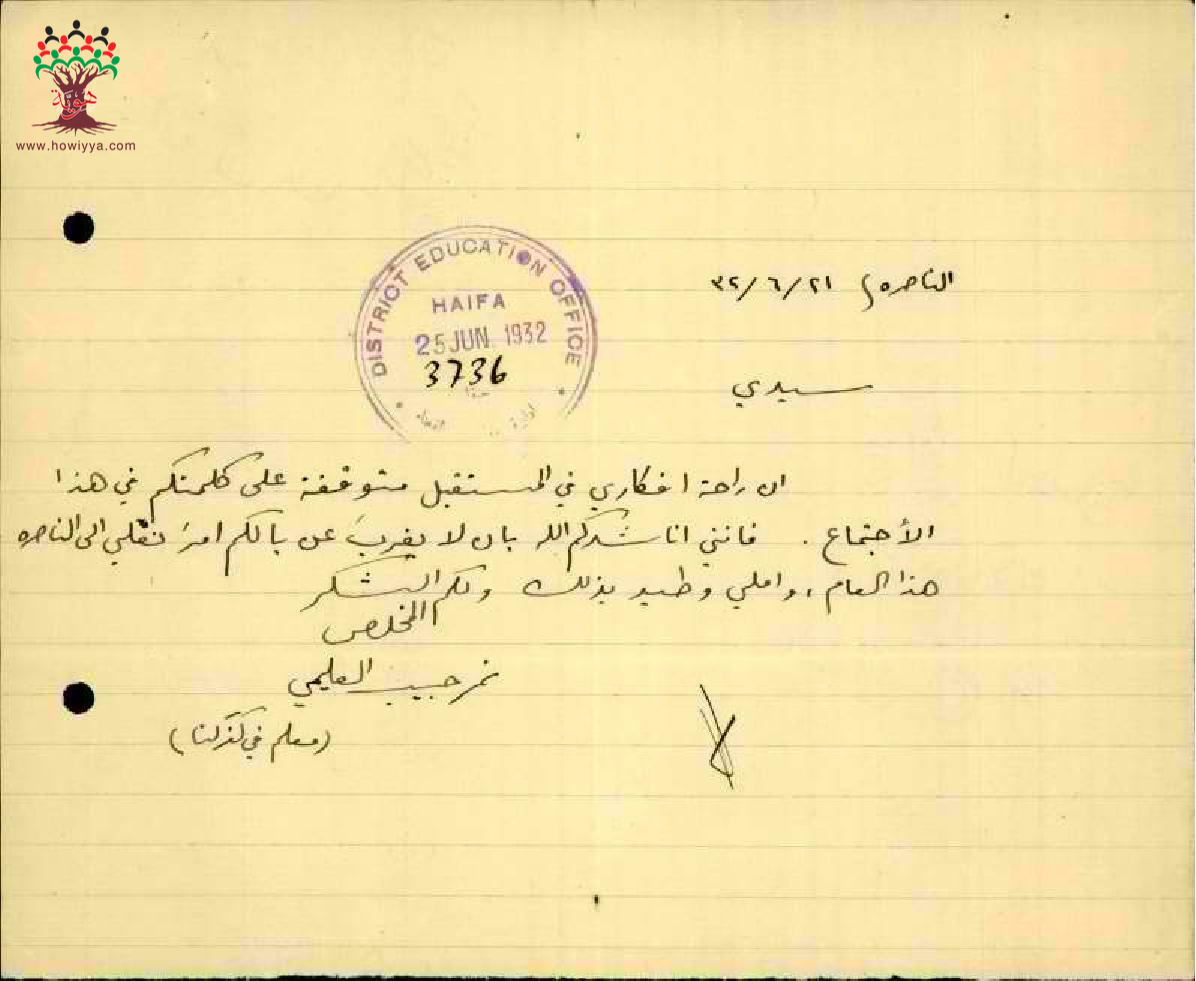 هوية
www.howiyya.com
DISTRICT EDUCATION OFFICE
HAIFA
25 JUN. 1932
3736
الناصره في ٢١/٦/٣٢
سيدي
ان راحة افكاري في المستقبل متوقفة على كلمتكم في هذا
الأجتماع . فانني اناشدكم الله بان لا يغربَ عن بالكم امرَ نقلي الى الناصره
هذا العام، واملي وطيد بذلك ولكم الشكر
المخلص
نمر حبيب العليمي
(معلم في كفركنا)